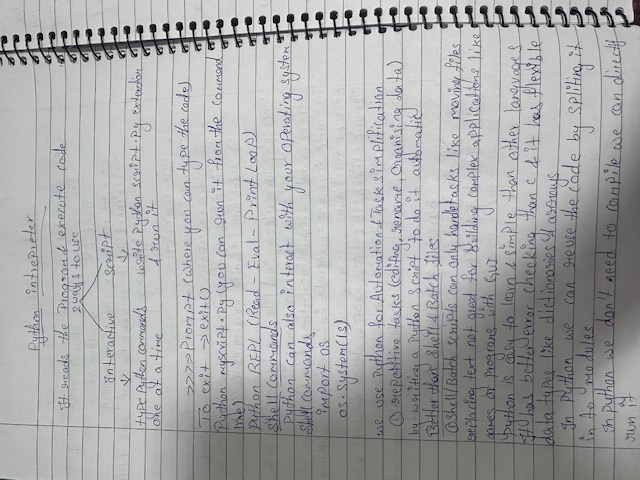 Python intrepreter
It reads the Program & execute code
2 ways to use
Interactive Script
type Python commands write Python script .Py extention
one at a time & run it
>>>> Prompt (where you can type the code)
To exit → exit()
Python myscript.Py (you can run it from the command
line)
Python REPL (Read - Eval - Print LooP)
Shell Commands
Python can also interact with your operating system
Shell commands
import os
os.system(ls)
we use Python for Automation & Task simplification
① repetitive tasks (editing, rename, organising data)
by writing a Python script to do it automatic
Better than Shell & Batch Files
① Shell/Batch scripts can only handle tasks like moving files
replacing text not great for building complex applications like
games or programs with GUI
Python is easy to learn & simple than other languages
It has better error checking than C & it has flexible
data types like dictionaries & arrays
In Python we can reuse the code by spliting it
in to modules
In python we don't need to compile we can directly
run it